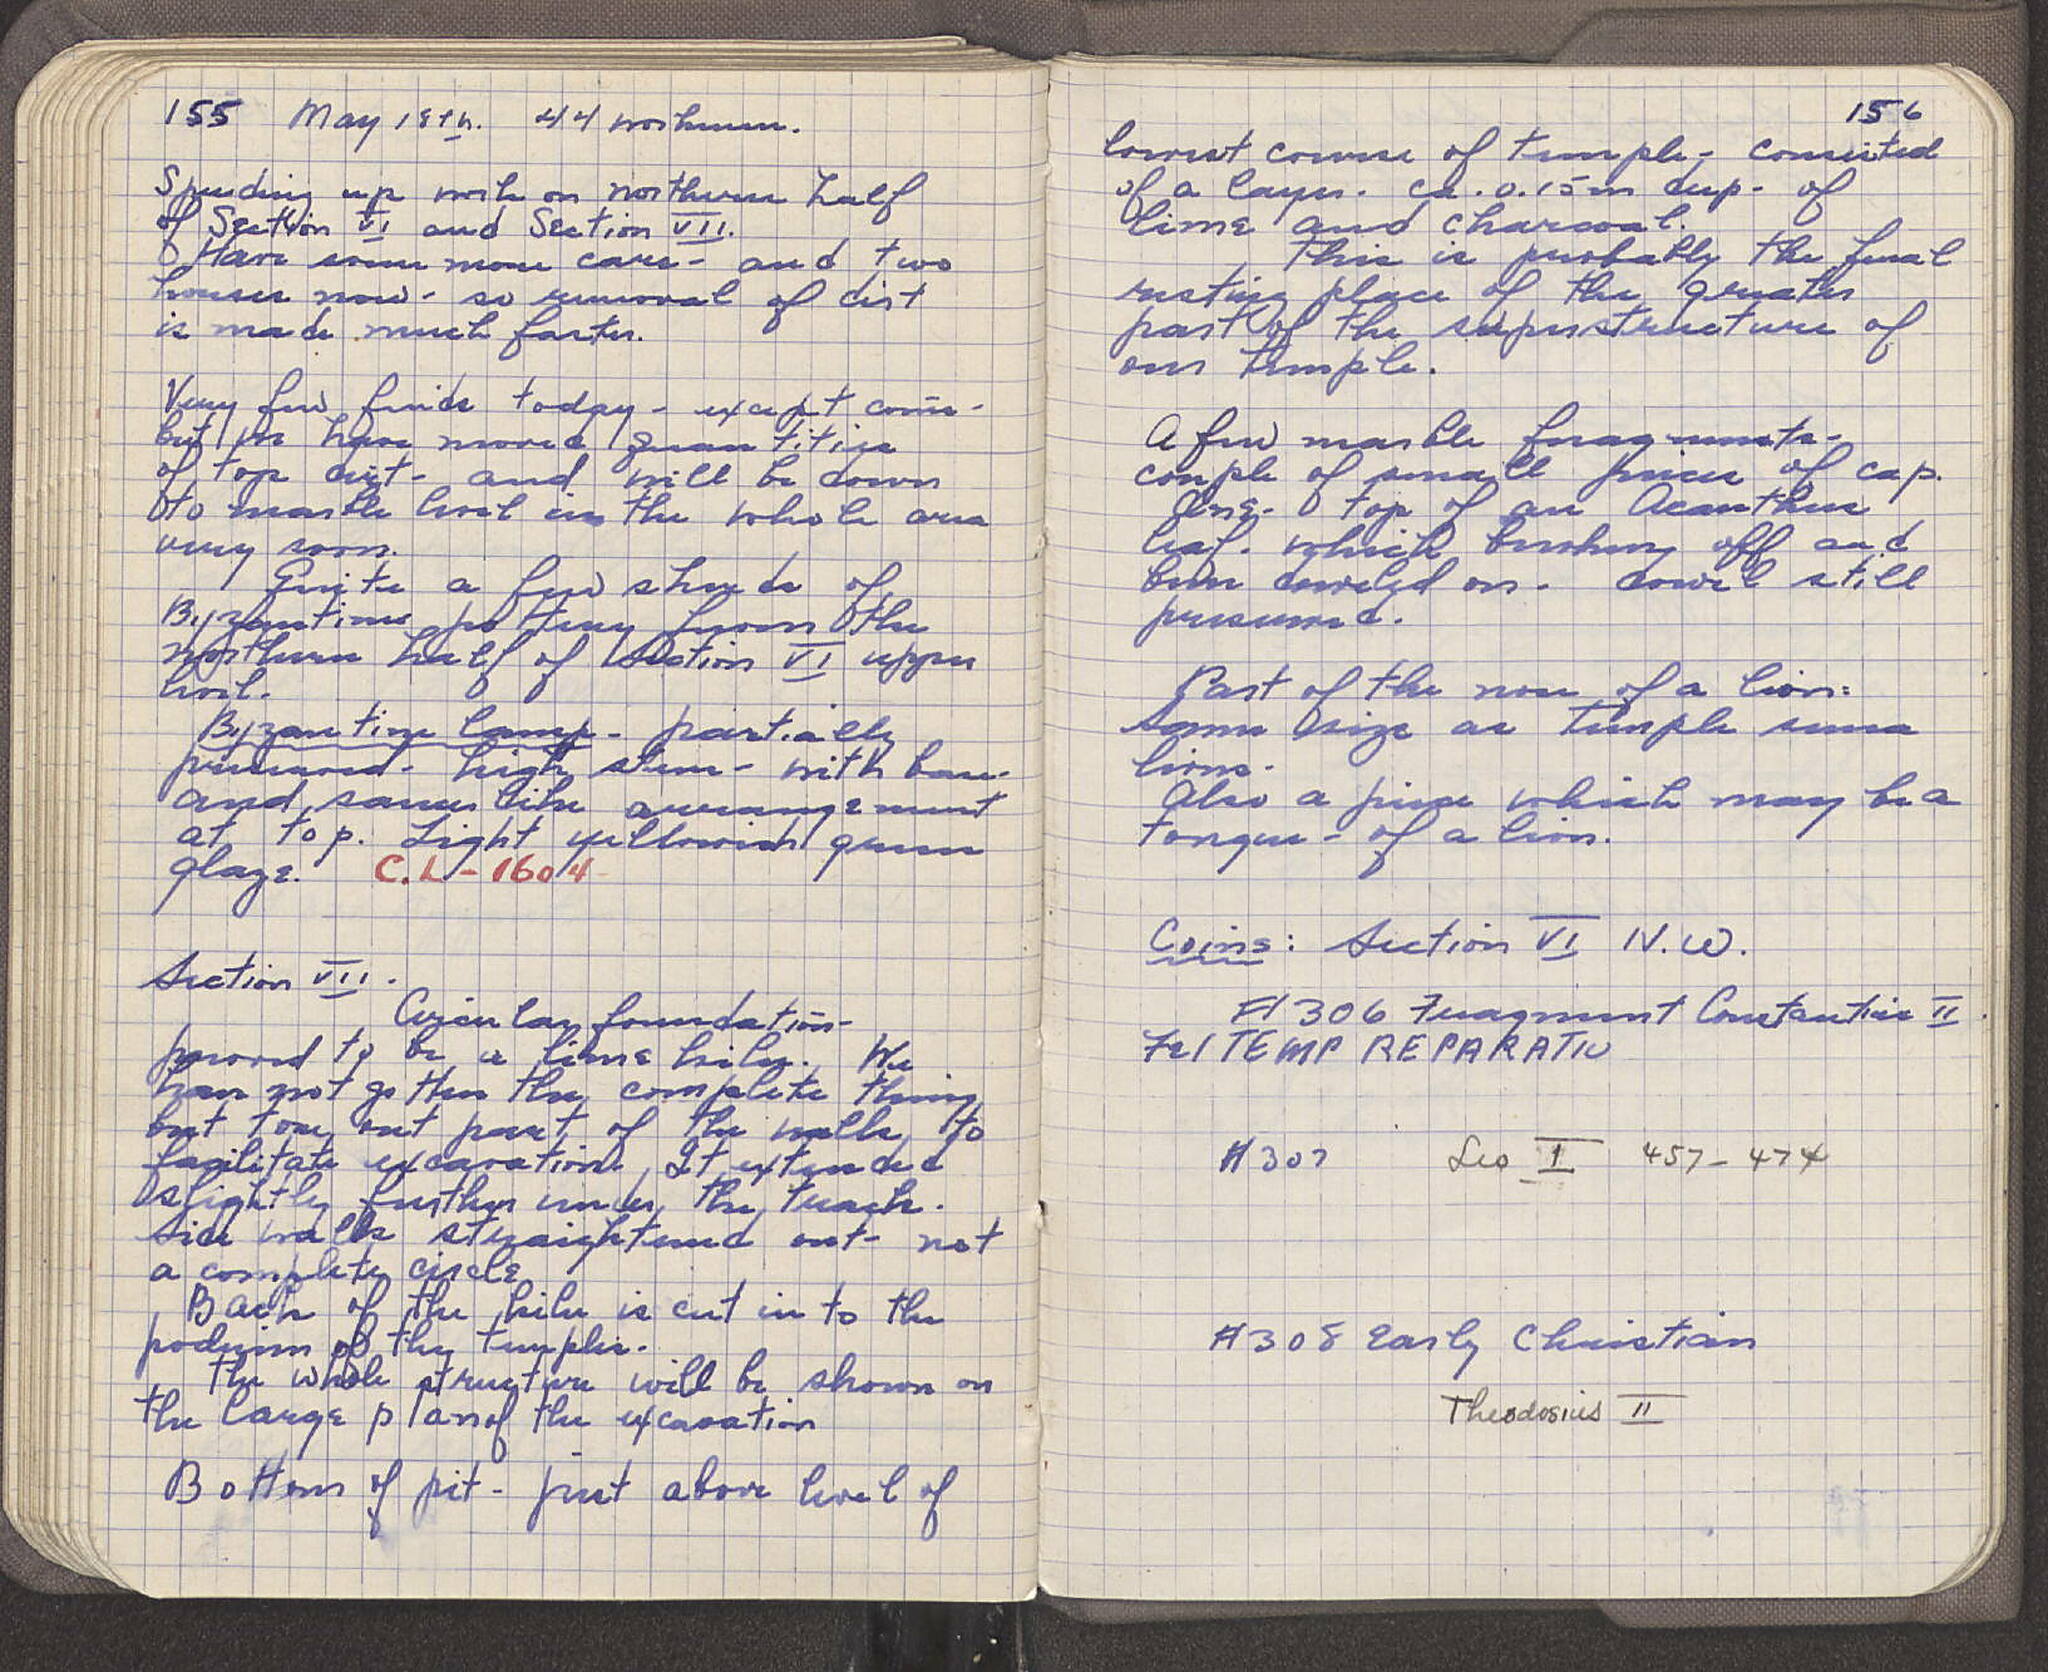 155 May 18th. 44 workmen.
Speeding up work on northern half
of Section VI and Section VII.
Have some more cars - and two
horses now - so removal of dirt
is made much faster.
Very few finds today - except coins -
but we have moved quantities
of top dirt - and will be down
to marble level in the whole area
very soon.
Quite a few sherds of
Byzantine pottery from the
northern half of Section VI upper
level.
Byzantine lamp - partially
preserved - high stem - with base -
and saucer like arrangement
at top. Light yellowish green
glaze. C.L - 1604
Section VII.
Circular foundation -
proved to be a lime kiln. We
have not gotten the complete thing
but tore out part of the walls to
facilitate excavation. It extended
slightly further under the track.
Side walls straightened out - not
a complete circle
Back of the kiln is cut in to the
podium of the temple.
The whole structure will be shown on
the large plan of the excavation
Bottom of pit - just above level of
156
lowest course of temple - consisted
of a layer - ca. 0.15m deep - of
lime and charcoal.
This is probably the final
resting place of the greater
part of the superstructure of
our temple.
A few marble fragments -
couple of small pieces of cap.
One - top of an Acanthus
leaf - which broken off and
been doweled on - dowel still
preserved.
Part of the nose of a lion:
Same size as temple sima
lions.
Also a piece which may be a
tongue - of a lion.
Coins: Section VI N.W.
#306 Fragment Constantius II
Fel TEMP REPARATIO
#307 Leo I 457-474
#308 Early Christian
Theodosius II